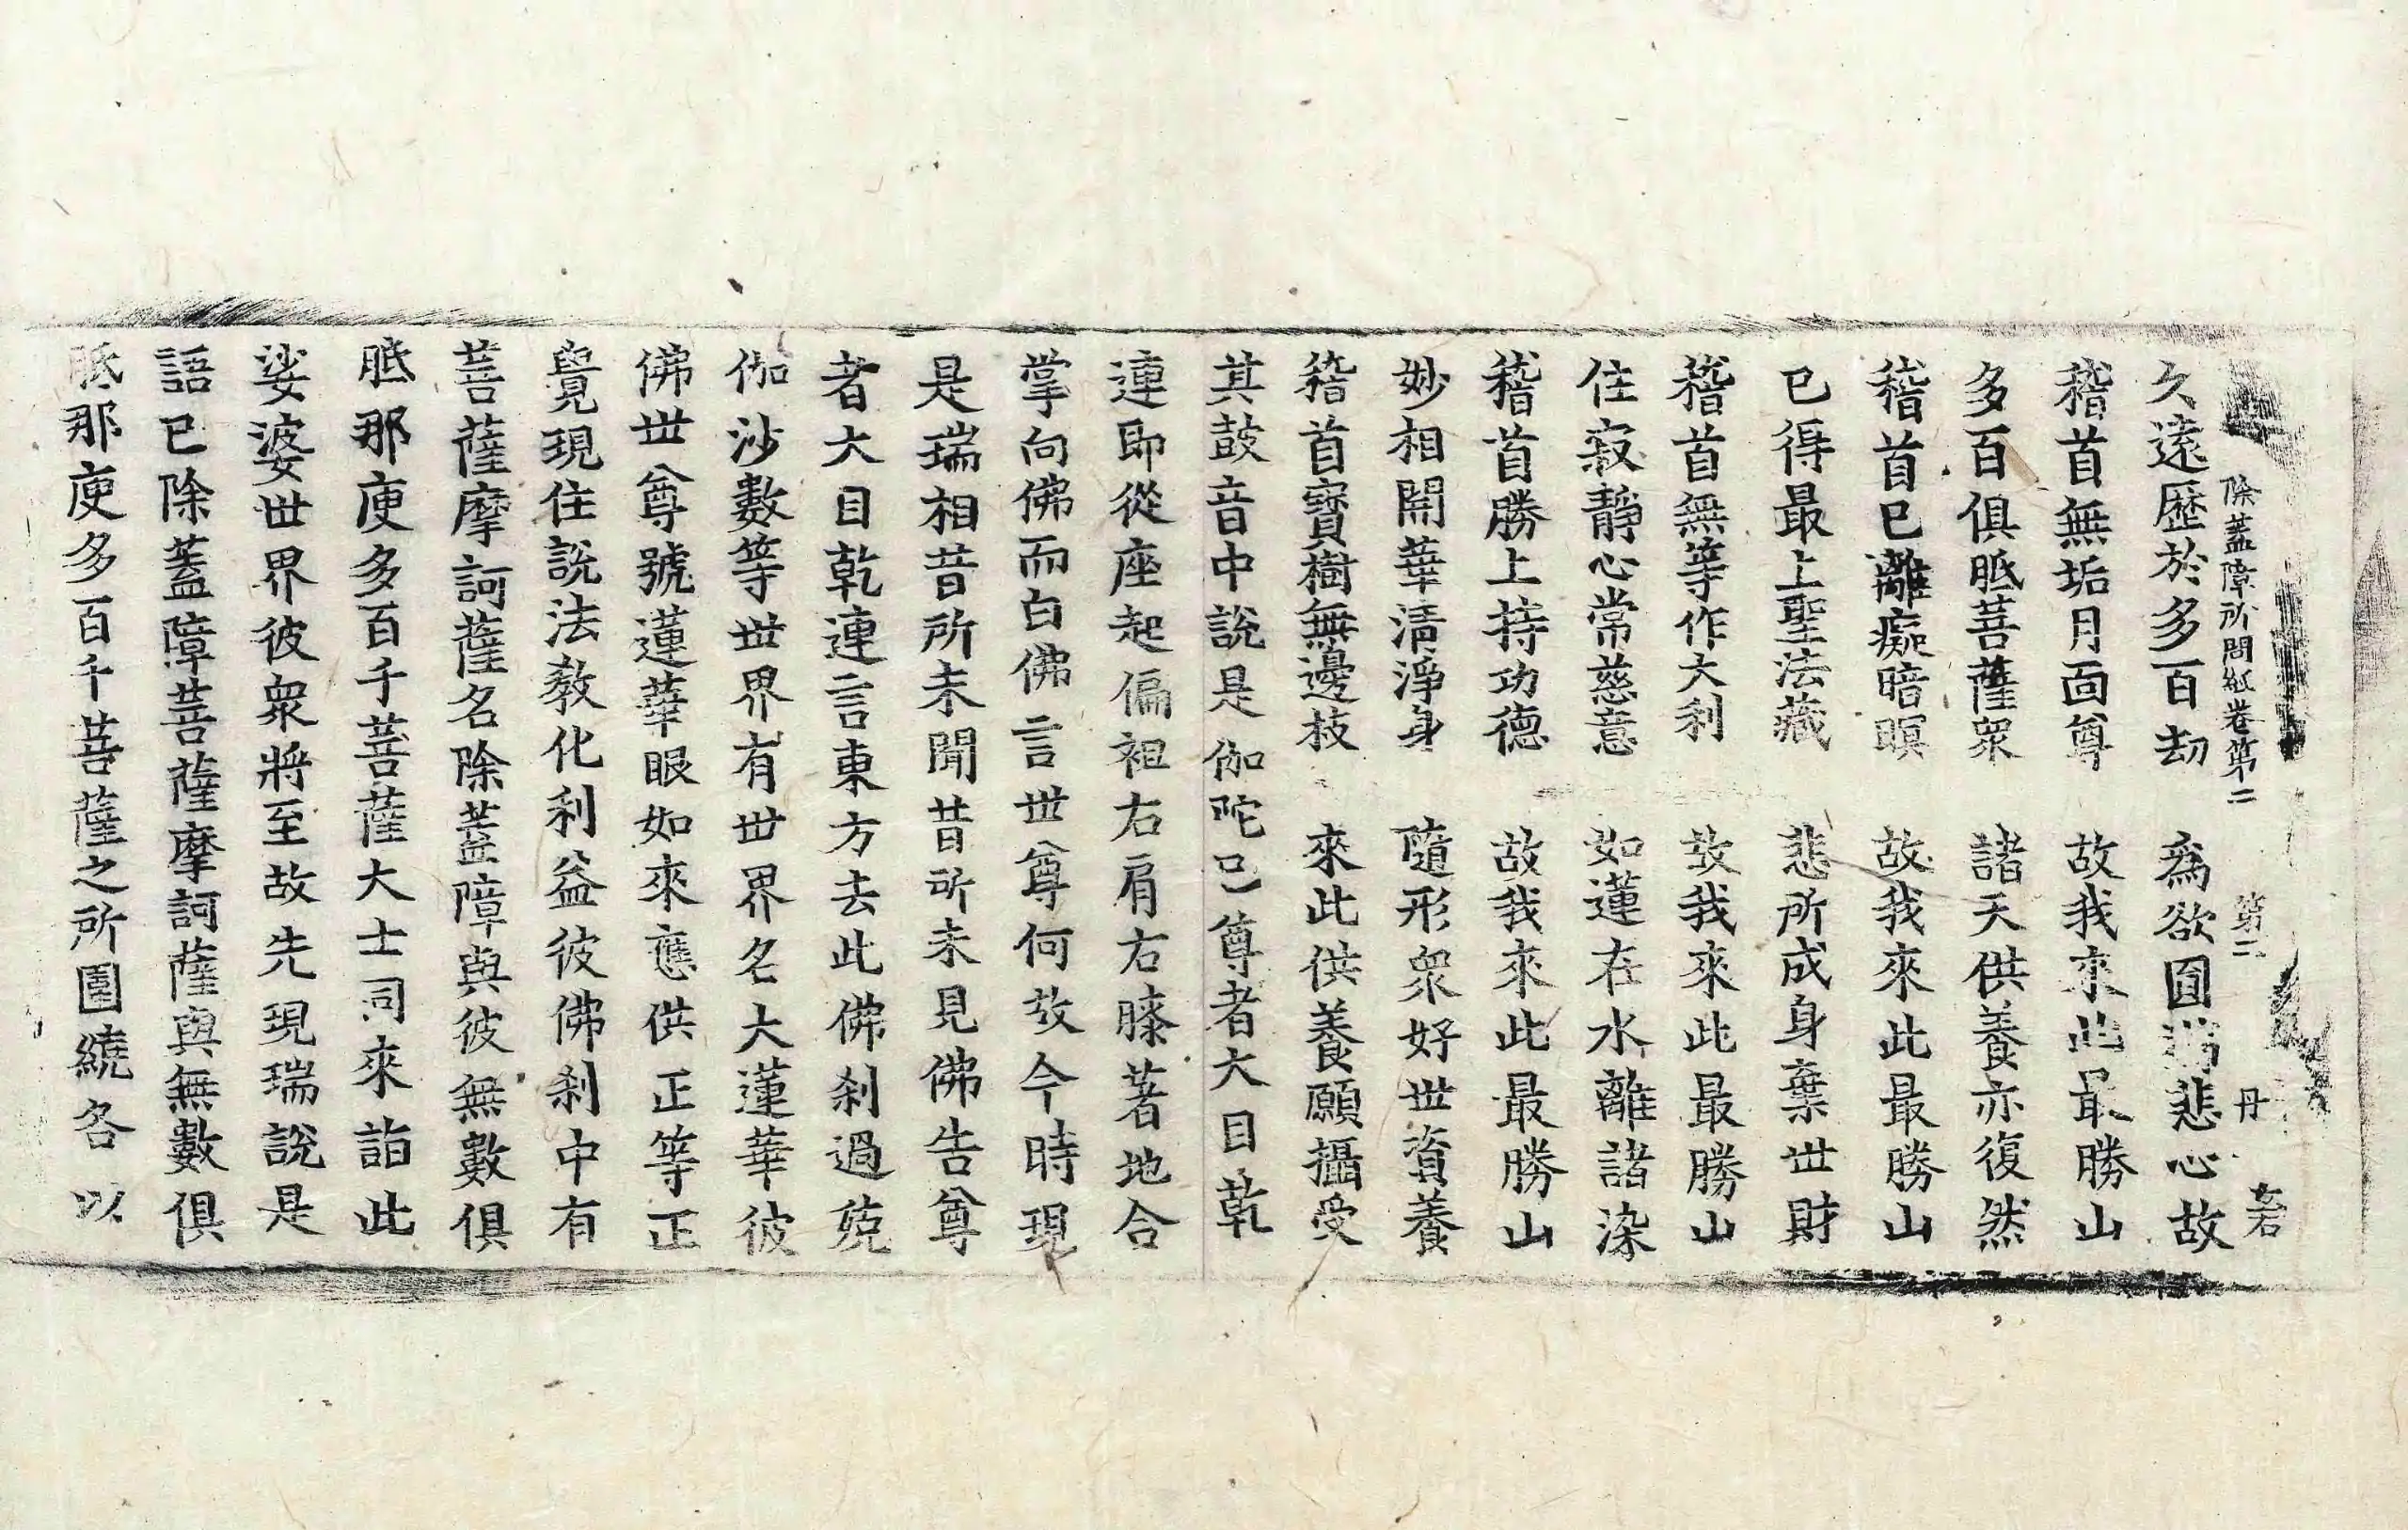 除蓋障所問經卷第二　第二　丹　若
久遠歷於多百劫　為欲圓滿悲心故
稽首無垢月面尊　故我來此最勝山
多百俱胝菩薩眾　諸天供養亦復然
稽首已離癡暗暝　故我來此最勝山
已得最上聖法藏　悲所成身棄世財
稽首無等作大利　故我來此最勝山
住寂靜心常慈意　如蓮在水離諸染
稽首勝上持功德　故我來此最勝山
妙相開華清淨身　隨形眾好世資養
稽首寶樹無邊枝　來此供養願攝受
其鼓音中說是伽陀已尊者大目乾
連即從座起偏袒右肩右膝著地合
掌向佛而白佛言世尊何故今時現
是瑞相昔所未聞昔所未見佛告尊
者大目乾連言東方去此佛剎過殑
伽沙數等世界有世界名大蓮華彼
佛世尊號蓮華眼如來應供正等正
覺現住說法教化利益彼佛剎中有
菩薩摩訶薩名除蓋障與彼無數俱
胝那庾多百千菩薩大士同來詣此
娑婆世界彼眾將至故先現瑞說是
語已除蓋障菩薩摩訶薩與無數俱
胝那庾多百千菩薩之所圍繞各以